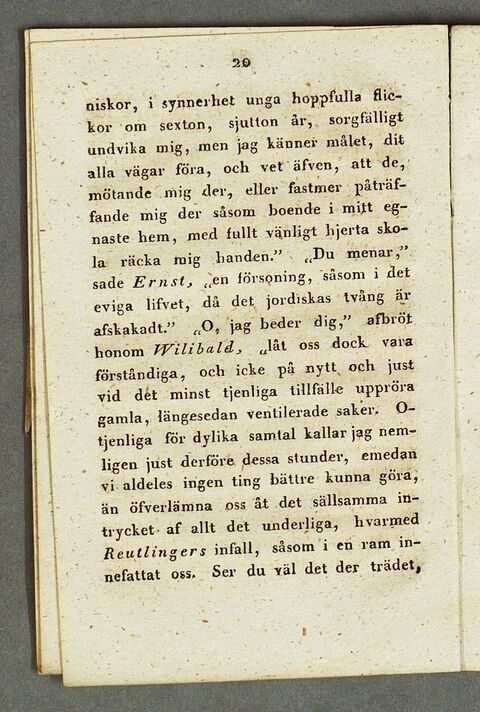 20
niskor, i synnerhet unga hoppfulla flic-
kor om sexton, sjutton år, sorgfälligt
undvika mig, men jag känner målet, dit
alla vägar föra, och vet äfven, att de,
mötande mig der, eller fastmer påträf-
fande mig der såsom boende i mitt eg-
naste hem, med fullt vänligt hjerta sko-
la räcka mig handen.” „Du menar,”
sade Ernst, „en försoning, såsom i det
eviga lifvet, då det jordiskas tvång är
afskakadt.” „O, jag beder dig,” afbröt
honom Wilibald, „låt oss dock vara
förståndiga, och icke på nytt och just
vid det minst tjenliga tillfälle uppröra
gamla, längesedan ventilerade saker. O-
tjenliga för dylika samtal kallar jag nem-
ligen just derföre dessa stunder, emedan
vi aldeles ingen ting bättre kunna göra,
än öfverlämna oss åt det sällsamma in-
trycket af allt det underliga, hvarmed
Reutlingers infall, såsom i en ram in-
nefattat oss. Ser du väl det der trädet,